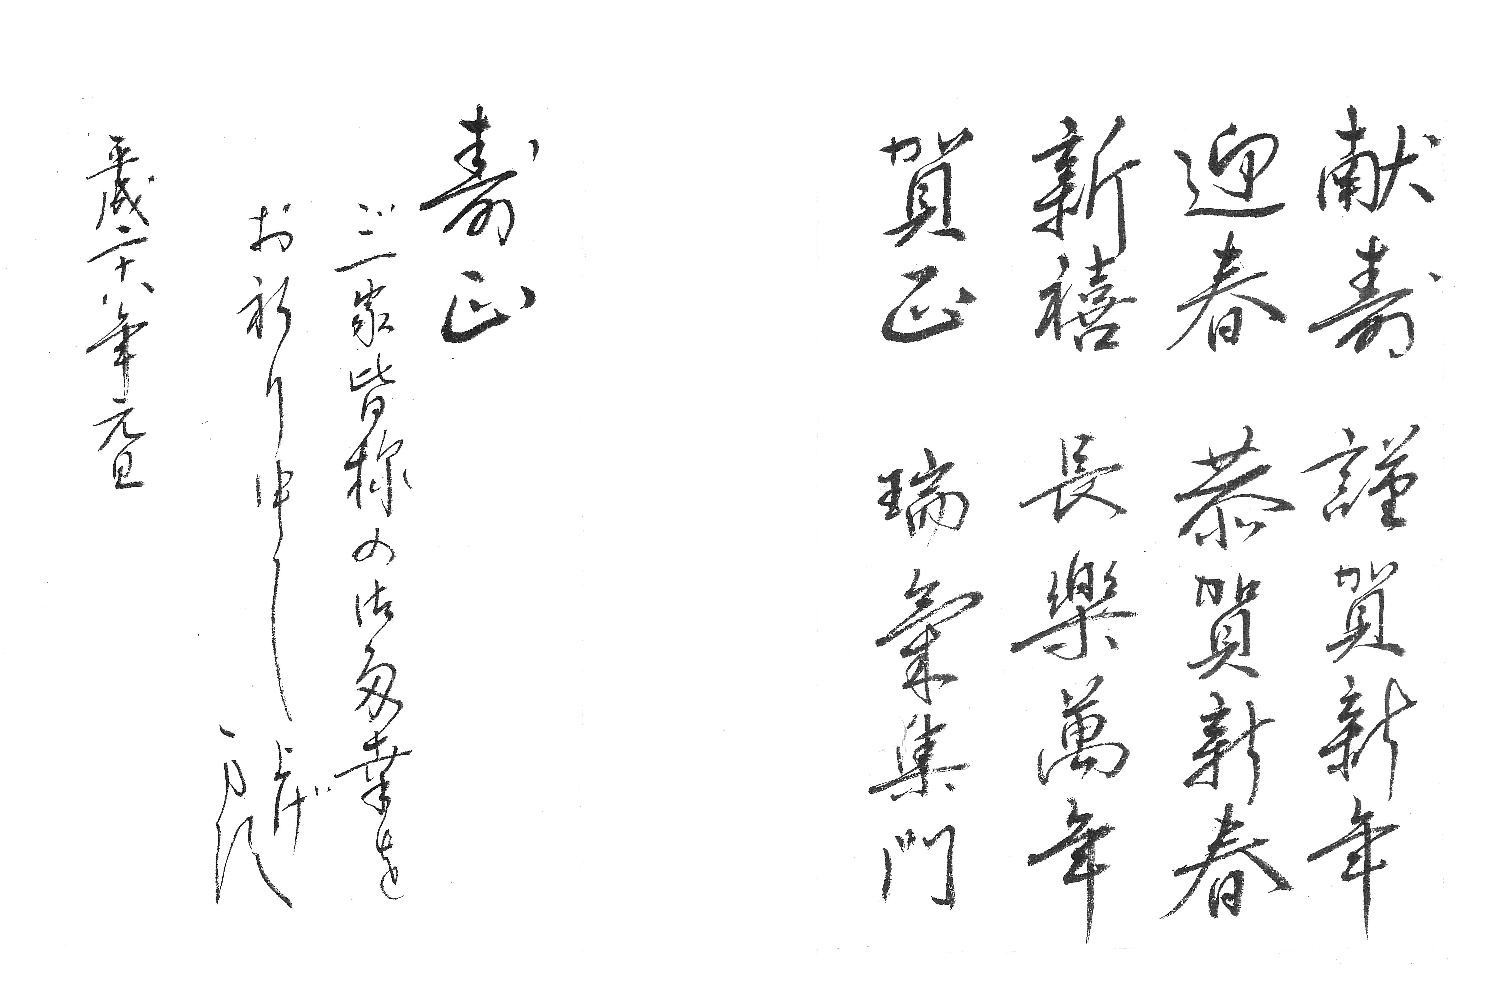 献寿 謹賀新年
迎春 恭賀新春
新禧 長楽萬年
賀正 瑞氣集門
寿正
ご一家皆様の御多幸を
お祈り申し上げ
ます
平成二十八年元旦